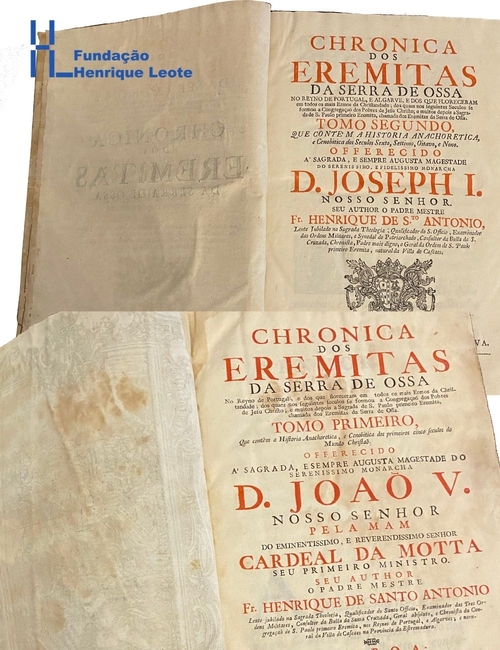 Fundação
Henrique Leote
CHRONICA
DOS
EREMITAS
DA SERRA DE OSSA
NO REYNO DE PORTUGAL, E ALGARVE, E DOS QUE FLORECERAM
em todos os mais Ermos da Christandade; dos quaes nos seguintes Seculos se
formou a Congregaçaõ dos Pobres de Jesu Christo, e muitos depois a Sagra-
da de S. Paulo primeiro Eremita, chamada dos Eremitas da Serra de Ossa.
TOMO SEGUNDO,
QUE CONTEM A HISTORIA ANACHORETICA,
e Cenobitica dos Seculos Sexto, Settimo, Oitavo, e Nono.
OFFERECIDO
A' SAGRADA, E SEMPRE AUGUSTA MAGESTADE
DO SERENISSIMO, E FIDELISSIMO MONARCHA
D. JOSEPH I.
NOSSO SENHOR.
SEU AUTHOR O PADRE MESTRE
Fr. HENRIQUE DE S.TO ANTONIO,
Lente Jubilado na Sagrada Theologia, Qualificador do S. Officio, Examinador
das Ordens Militares, e Synodal do Patriarchado, Consultor da Bulla da S.
Cruzada, Chronista, Padre mais digno, e Geral da Ordem de S. Paulo
primeiro Eremita, natural da Villa de Cascaes.
VA.
CHRONICA
DOS
EREMITAS
DA SERRA DE OSSA
No Reyno de Portugal, e dos que floreceram em todos os mais Ermos da Chris-
tandade; dos quaes nos seguintes seculos se formou a Congregaçaõ dos Pobres
de Jesu Christo, e muitos depois a Sagrada de S. Paulo primeiro Eremita,
chamada dos Eremitas da Serra de Ossa.
TOMO PRIMEIRO,
Que contém a Historia Anachoretica, e Cenobitica dos primeiros cinco seculos do
Mundo Christaõ.
OFFERECIDO
A' SAGRADA, E SEMPRE AUGUSTA MAGESTADE DO
SERENISSIMO MONARCHA
D. JOAÕ V.
NOSSO SENHOR
PELA MAM
DO EMINENTISSIMO, E REVERENDISSIMO SENHOR
CARDEAL DA MOTTA
SEU PRIMEIRO MINISTRO.
SEU AUTHOR
O PADRE MESTRE
Fr. HENRIQUE DE SANTO ANTONIO
Lente jubilado na Sagrada Theologia, Qualificador do Santo Officio, Examinador das Tres Or-
dens Militares, Consultor da Bulla da Santa Cruzada, Geral absoluto, e Chronista da Con-
gregaçaõ de S. Paulo primeiro Eremita, nos Reynos de Portugal, e Algarves; e natu-
ral da Villa de Cascaes na Provincia da Estremadura.